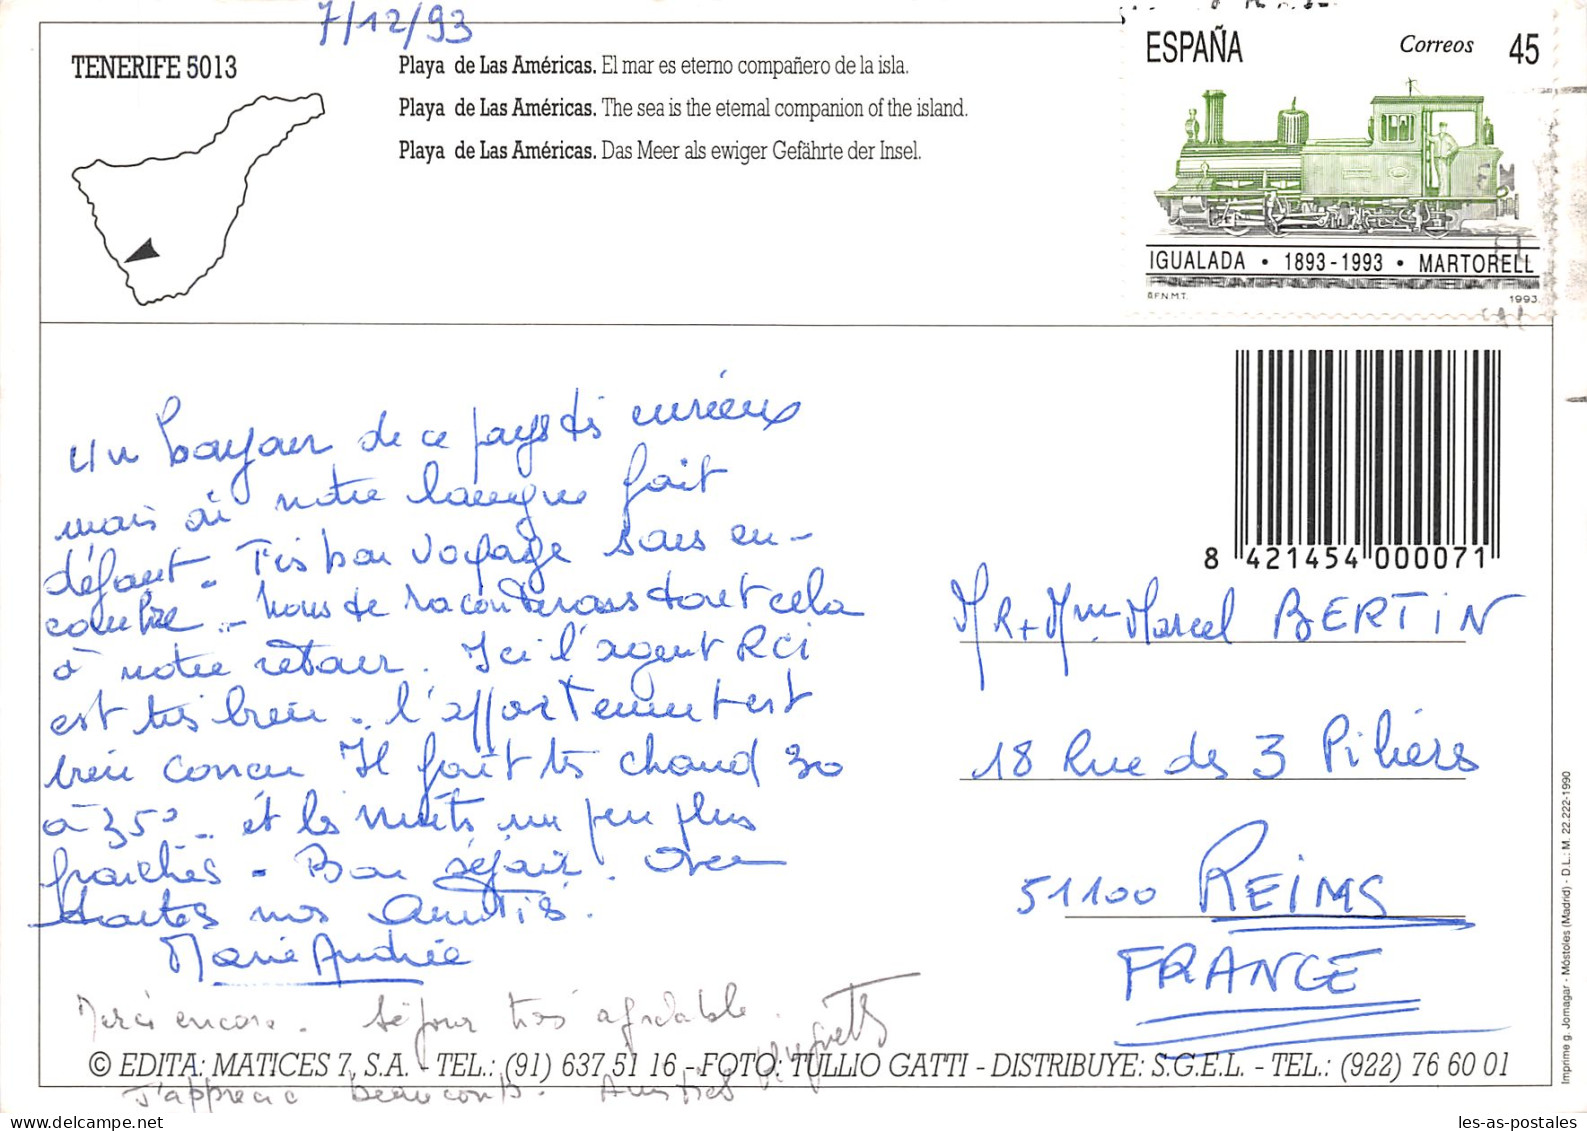 7/12/93
TENERIFE 5013
Playa de Las Américas. El mar es eterno compañero de la isla.
Playa de Las Américas. The sea is the eternal companion of the island.
Playa de Las Américas. Das Meer als ewiger Gefährte der Insel.
ESPAÑA Correos 45
IGUALADA • 1893-1993 • MARTORELL
F.N.M.T. 1993
8 421454 000071
Un bonjour de ce pays très curieux
mais où notre langue fait
défaut. Très bon voyage sans en-
combre. Nous te raconterons tout cela
à notre retour. Ici l'agent RCI
est très bien. l'appartement est
bien concu Il fait très chaud 30
à 35°. et les nuits un peu plus
fraiches - Bon séjour. Avec
toutes nos Amitiés.
Marie Andrée
Merci encore. Séjour très agréable.
Huguette
J'apprécie beaucoup. Amitiés
MR + Mme Marcel BERTIN
18 Rue des 3 Piliers
51100 REIMS
FRANCE
© EDITA: MATICES 7, S.A. - TEL.: (91) 637 51 16 - FOTO: TULLIO GATTI - DISTRIBUYE: S.G.E.L. - TEL.: (922) 76 60 01
Imprime g. Jomagar - Móstoles (Madrid) - D.L.: M. 22.222-1990
les-as-postales